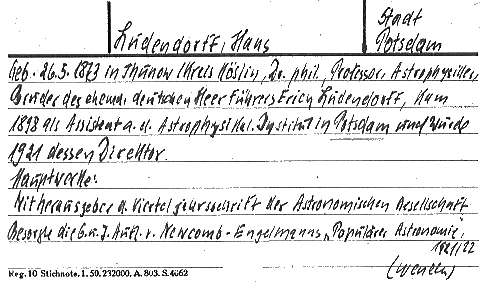 Ludendorff, Hans
Stadt
Potsdam
Geb. 26.5.1873 in Thunow (Kreis Köslin, Dr. phil., Professor, Astrophysiker,
Bruder des ehema. deutschen Heerführers Erich Ludendorff, kam
1898 als Assistent a. d. Astrophysikal. Institut in Potsdam und wurde
1921 dessen Direktor.
Hauptwerke:
Mitherausgeber d. Vierteljahrsschrift der Astronomischen Gesellschaft
Besorgte die 6. u. 7. Aufl. v. Newcomb-Engelmanns „Populärer Astronomie",
1921/22
Reg. 10 Stichnote. 1. 50. 232000. A. 803. S. 4062